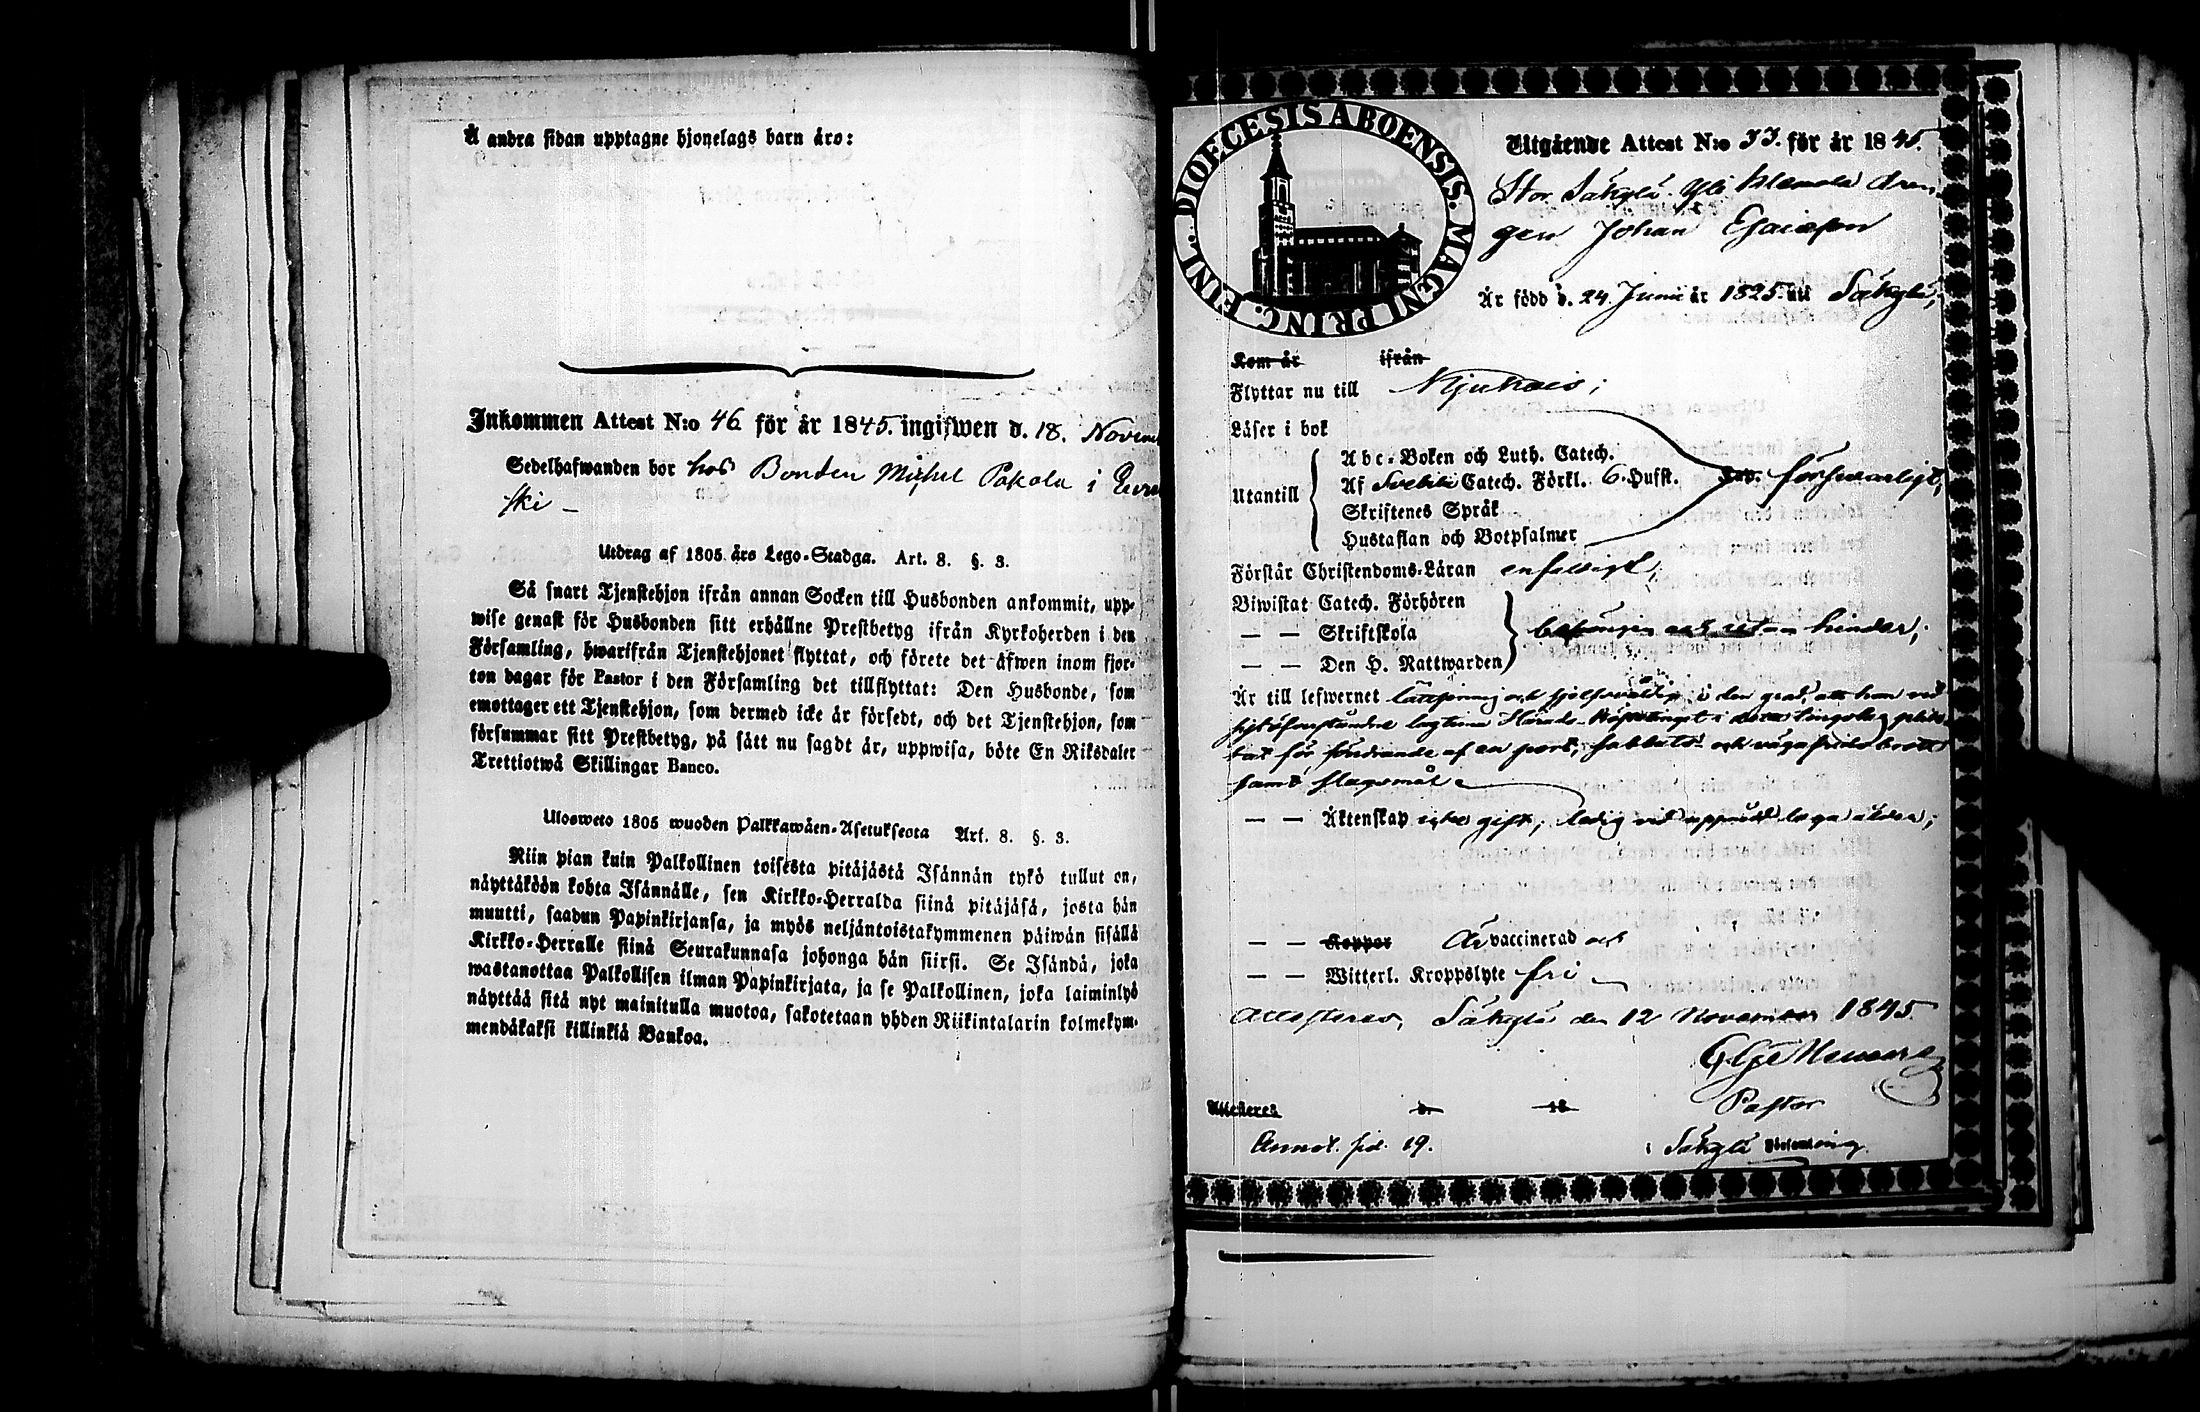 Å andra sidan upptagne hjonelags barn äro:
Inkommen Attest N:o 46 för år 1845. ingifwen d. 18. Novem
Sedelhafwanden bor hos Bonden Michel Pakola i
ski –
Utdrag af 1805 års Lego-Stadga. Art. 8. §. 3.
Så snart Tjenstehjon ifrån annan Socken till Husbonden ankommit, upp-
wise genast för Husbonden sitt erhållne Prestbetyg ifrån Kyrkoherden i den
Församling, hwarifrån Tjenstehjonet flyttat, och förete det äfwen inom fjor-
ton dagar för Pastor i den Församling det tillflyttat: Den Husbonde, som
emottager ett Tjenstehjon, som dermed icke är försedt, och det Tjenstehjon, som
försummar sitt Prestbetyg, på sätt nu sagdt är, uppwisa, böte En Riksdaler
Trettiotwå Skillingar Banco.
Ulosweto 1805 wuoden Palkkawäen-Asetuksesta Art. 8. §. 3.
Niin pian kuin Palkollinen toisesta pitäjästä Isännän tykö tullut on,
näyttäköön kohta Isännälle, sen Kirkko-Herralda siinä pitäjäsä, josta hän
muutti, saadun Papinkirjansa, ja myös neljäntoistakymmenen päiwän sisällä
Kirkko-Herralle siinä Seurakunnasa johonga hän siirsi. Se Isändä, joka
wastanottaa Palkollisen ilman Papinkirjata, ja se Palkollinen, joka laiminlyö
näyttää sitä nyt mainitulla muotoa, sakotetaan yhden Riikintalarin kolmekym-
mendäkaksi killinkiä Bankoa.
DIOECESIS ABOENSIS. MAGNI PRINC. FINL.
Utgående Attest N:o 33. för år 1845.
Stor Säkylä Yli Klemola dren-
gen Johan Esaiasson
Är född d. 24. Juni år 1825. uti Säkylä;
Kom år ifrån
Flyttar nu till Kjukais;
Läser i bok
Utantill
Abc-Boken och Luth. Catech.
Af Svebilii Catech. Förkl. 6. Hufst. försvarligt;
Skriftenes Språk
Hustaflan och Botpsalmer
Förstår Christendoms-Läran enfaldigt;
Biwistat Catech. Förhören
— — Skriftskola begången och utan hinder;
— — Den H. Nattwarden
Är till lefwernet lättsinnig och sjelfsvåldig i den grad, att han vid
sistförflutne lagtima Härads
för af en port, sabbats- och
samt slagsmål
— — Äktenskap icke gift; ledig vid uppnådd laga ålder;
— — Koppor Är vaccinerad och
— — Witterl. Kroppslyte fri
Attesteras, Säkylä den 12 November 1845.
Pastor
Attesteras d. 18
Annot. sid. 19. i Säkylä Församling.